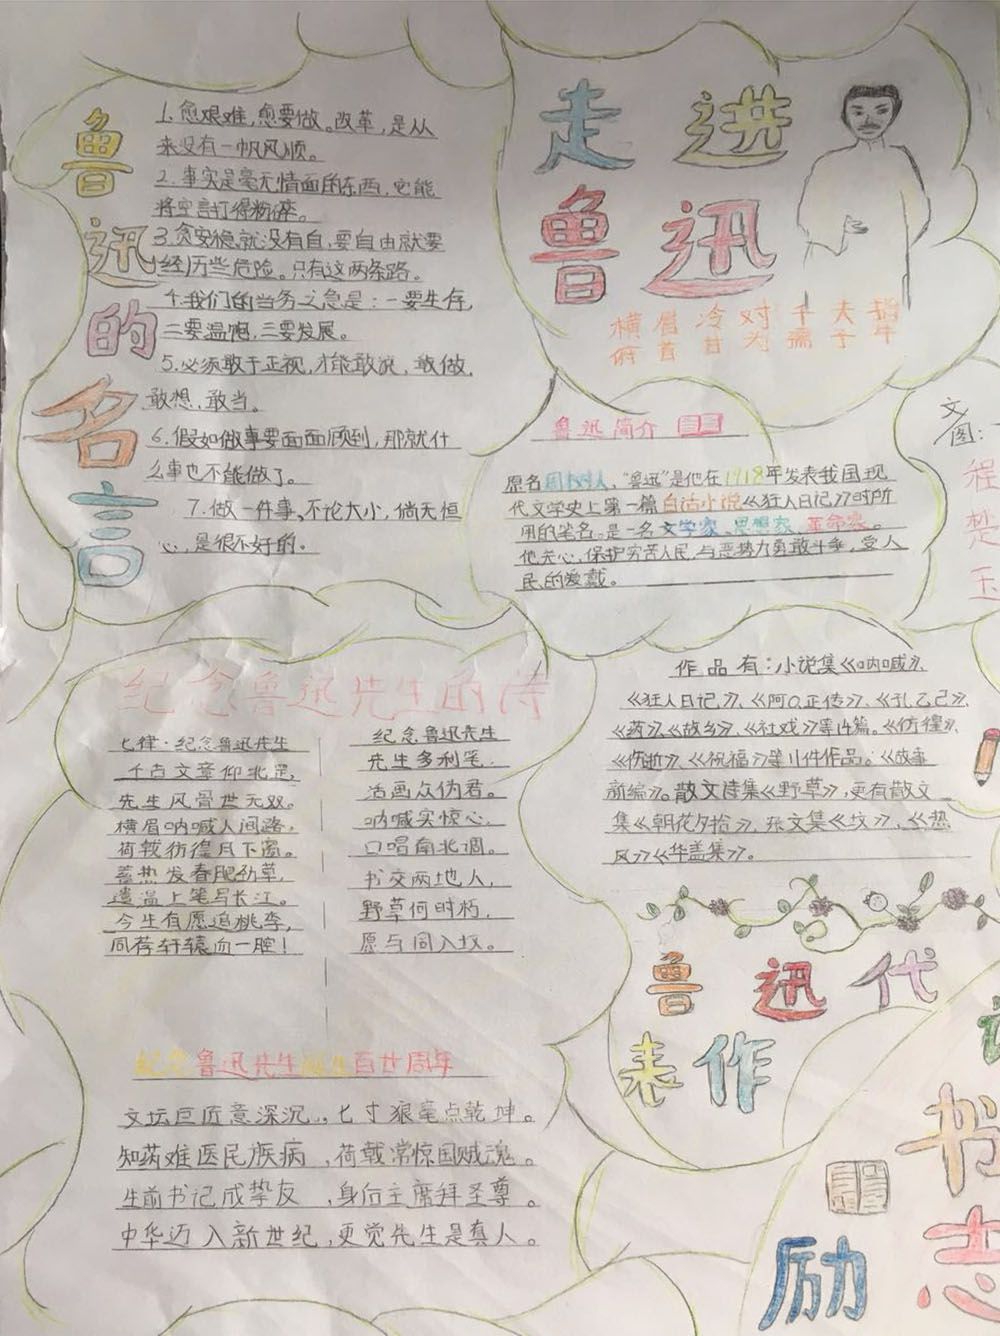 鲁迅的名言
1.愈艰难,愈要做。改革,是从
来没有一帆风顺。
2.事实是毫无情面的东西,它能
将空言打得粉碎。
3.贪安稳就没有自,要自由就要
经历些危险。只有这两条路。
4.我们的当务之急是:一要生存,
二要温饱,三要发展。
5.必须敢于正视,才能敢说,敢做,
敢想,敢当。
6.假如做事要面面顾到,那就什
么事也不能做了。
7.做一件事,不论大小,倘无恒
心,是很不好的。
走进
鲁迅
横眉冷对千夫指
俯首甘为孺子牛
鲁迅简介
原名周树人,“鲁迅”是他在1918年发表我国现
代文学史上第一篇白话小说《狂人日记》时所
用的笔名。是一名文学家、思想家、革命家。
他关心,保护穷苦人民,与恶势力勇敢斗争,受人
民的爱戴。
文
图:
程
楚
玉
纪念鲁迅先生的诗
七律·纪念鲁迅先生
千古文章仰北星,
先生风骨世无双。
横眉呐喊人间路,
荷戟彷徨月下窗。
蓄热发春肥劲草,
遗温上笔写长江。
今生有愿追桃李,
同荐轩辕血一腔!
纪念鲁迅先生
先生多利笔,
活画众伪君。
呐喊实惊心,
口唱南北调。
书交两地人,
野草何时朽,
愿与同入坟。
作品有:小说集《呐喊》、
《狂人日记》、《阿Q正传》、《孔乙己》、
《药》、《故乡》、《社戏》等14篇。《彷徨》、
《伤逝》、《祝福》等11件作品。《故事
新编》。散文诗集《野草》,更有散文
集《朝花夕拾》,杂文集《坟》,《热
风》《华盖集》。
鲁迅代
表作
纪念鲁迅先生诞生百廿周年
文坛巨匠意深沉,七寸狼毫点乾坤。
知药难医民族病,荷戟常惊国贼魂。
生前书记成挚友,身后主席拜圣尊。
中华迈入新世纪,更觉先生是真人。
书
励志